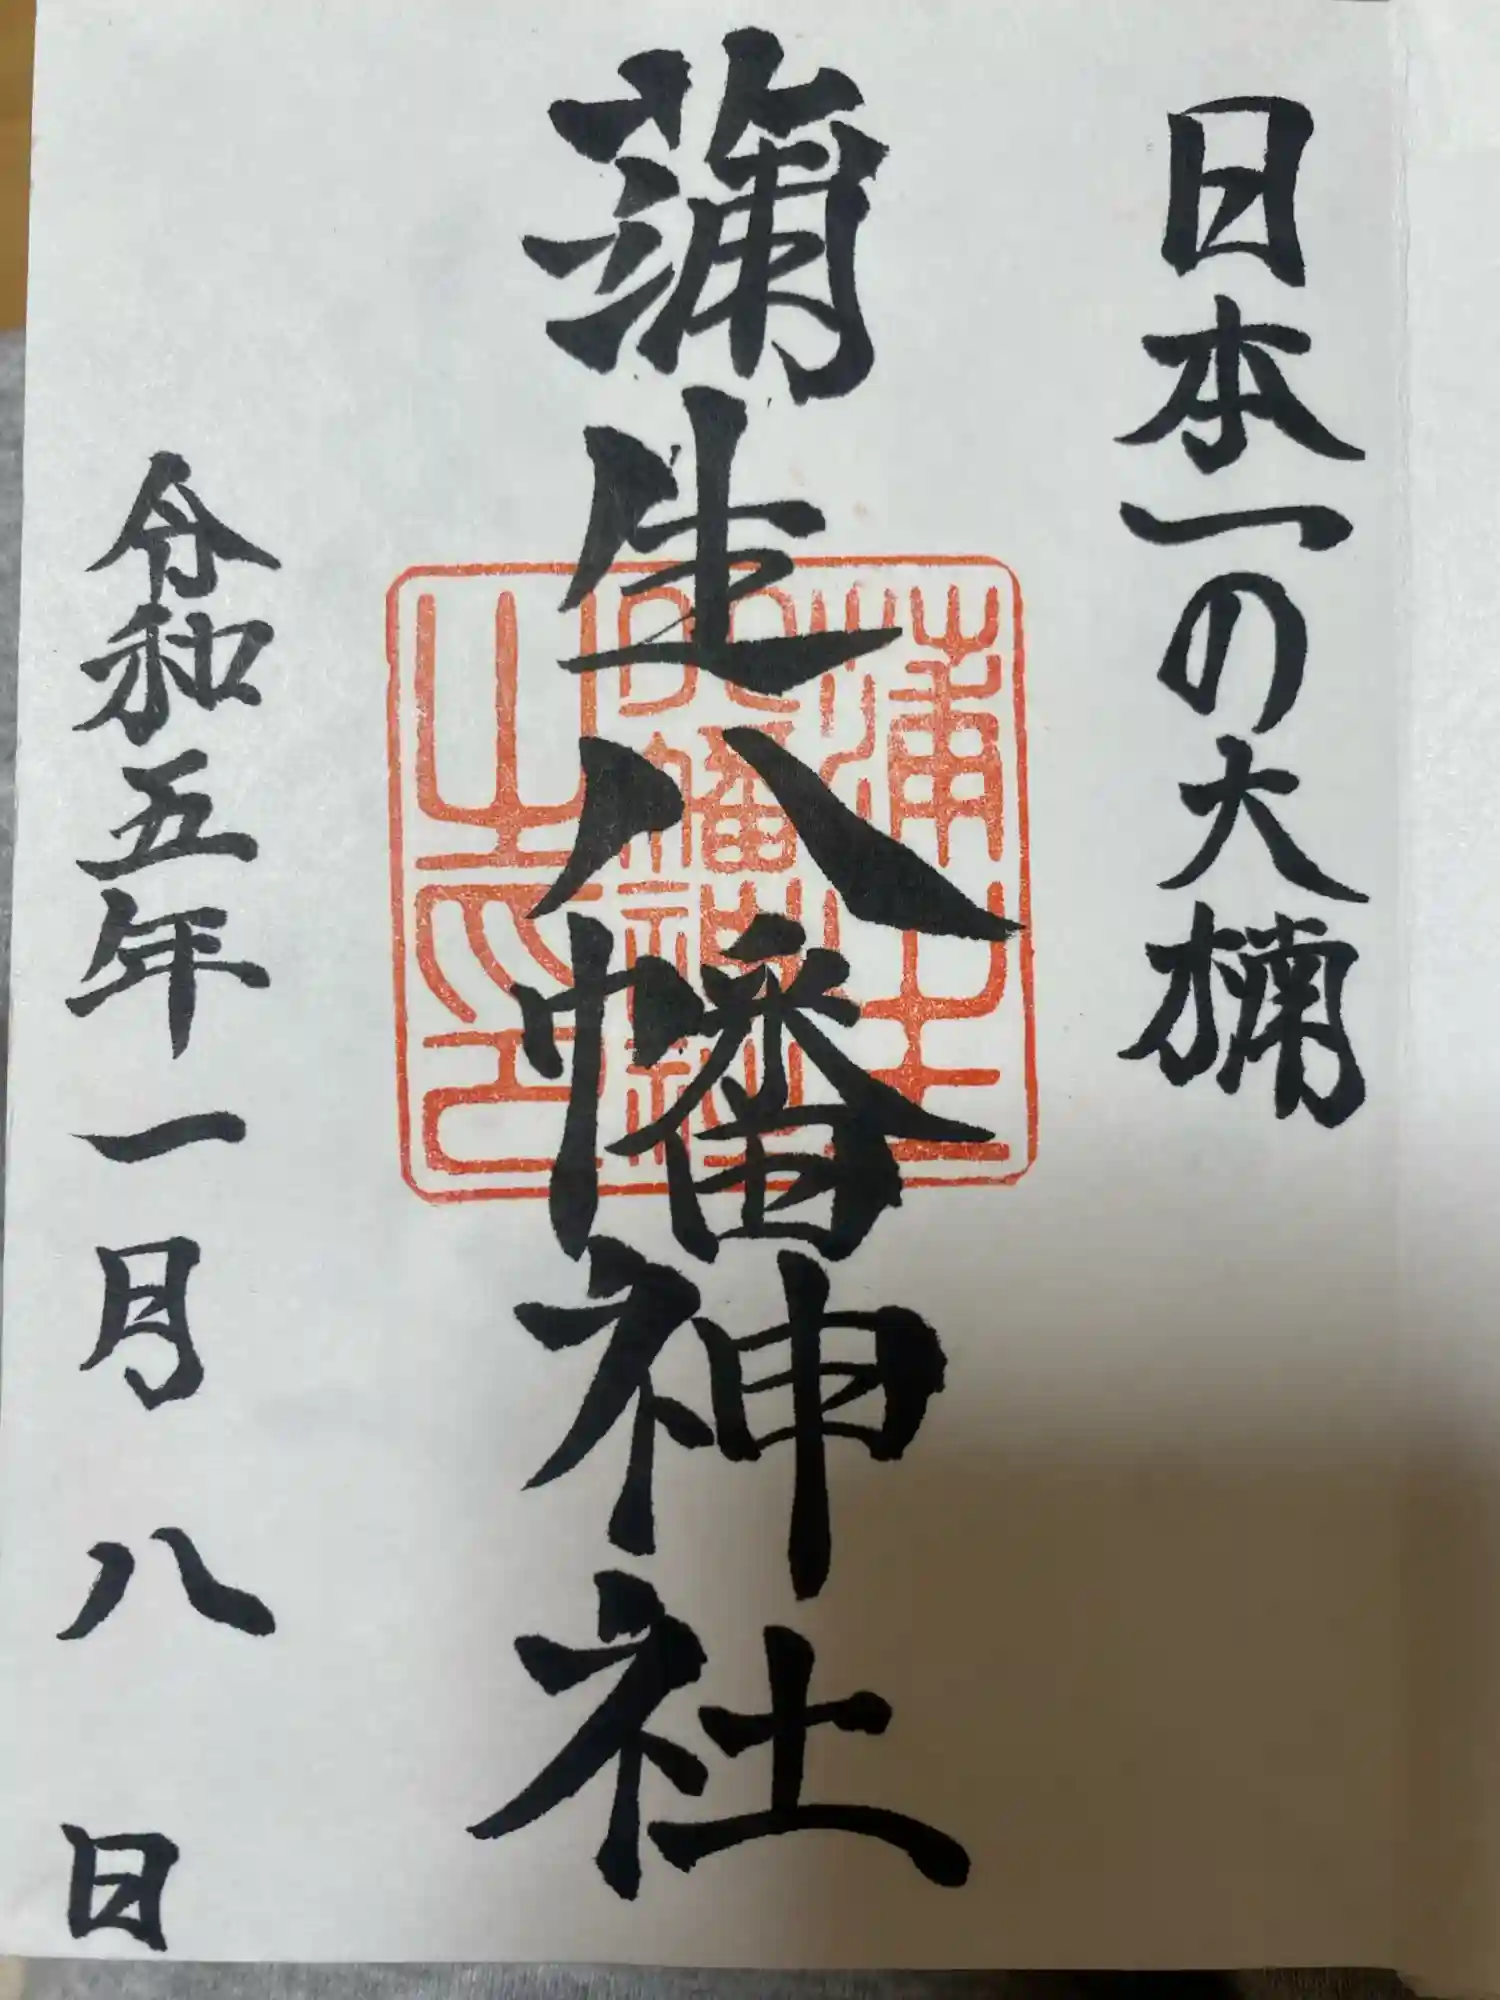 日本一の大楠
蒲生八幡神社
蒲生八幡神社之印
令和五年一月八日